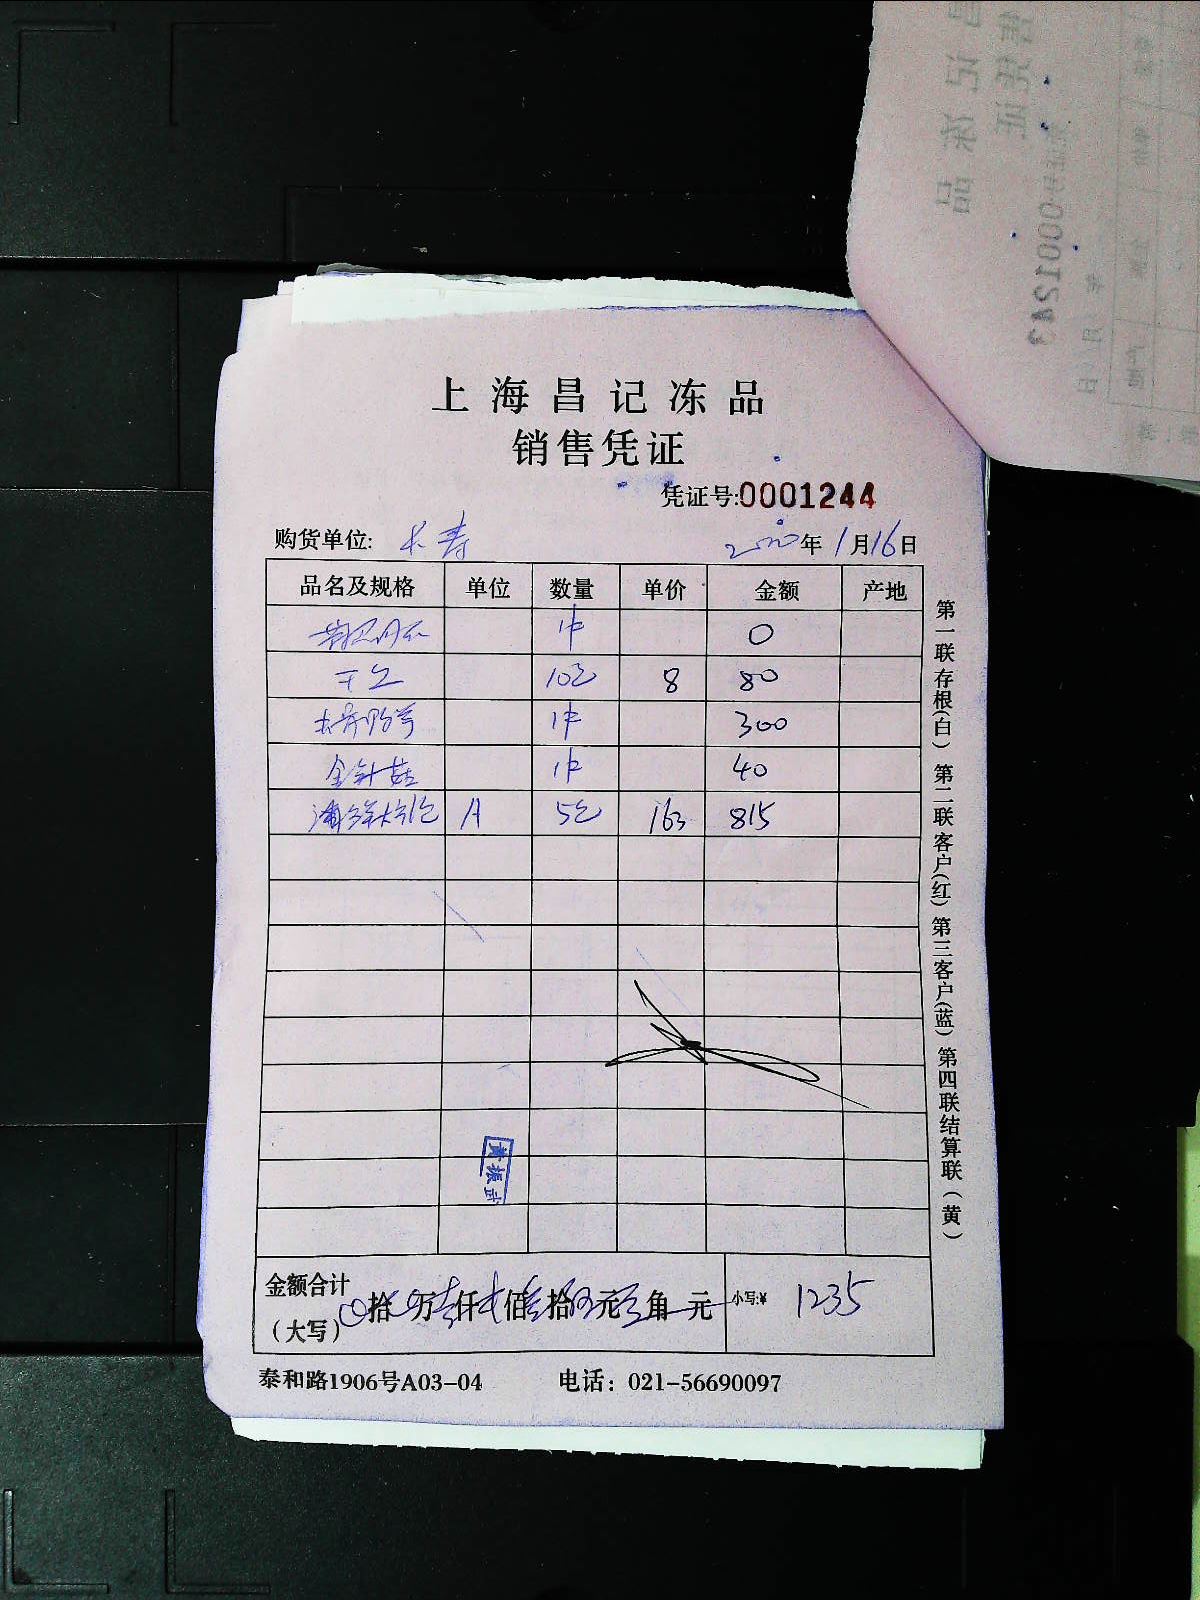 上海昌记冻品
销售凭证
凭证号:0001244
购货单位: 长寿 2020年1月16日
品名及规格 单位 数量 单价 金额 产地
1件 0
10包 8 80
1件 300
金针菇 1件 40
A 5包 163 815
黄振武
金额合计
(大写) 拾 万 仟 佰 拾 元 角 元 小写:¥ 1235
泰和路1906号A03-04 电话: 021-56690097
第一联存根(白) 第二联客户(红) 第三客户(蓝) 第四联结算联(黄)
0001243